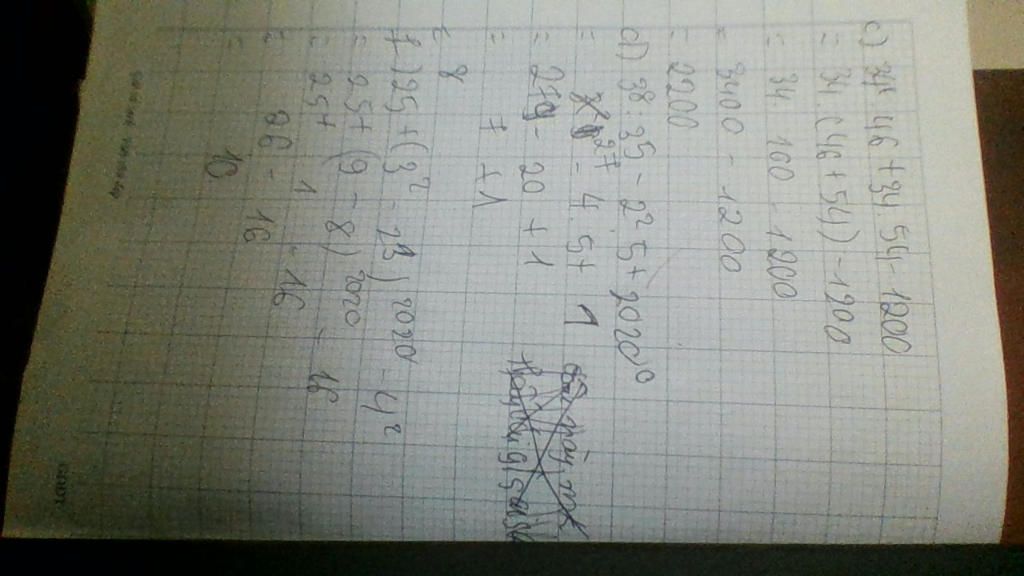 c) 34.46 + 34.54 - 1200
= 34.(46 + 54) - 1200
= 34. 100 - 1200
= 3400 - 1200
= 2200
d) 3⁸ : 3⁵ - 2².5 + 2020⁰
= 27 - 4.5 + 1
= 27 - 20 + 1
= 7 + 1
= 8
f) 25 + (3² - 2³) 2020 - 4²
= 25 + (9 - 8) 2020 - 16
= 25 + 1 - 16
= 26 - 16
= 10